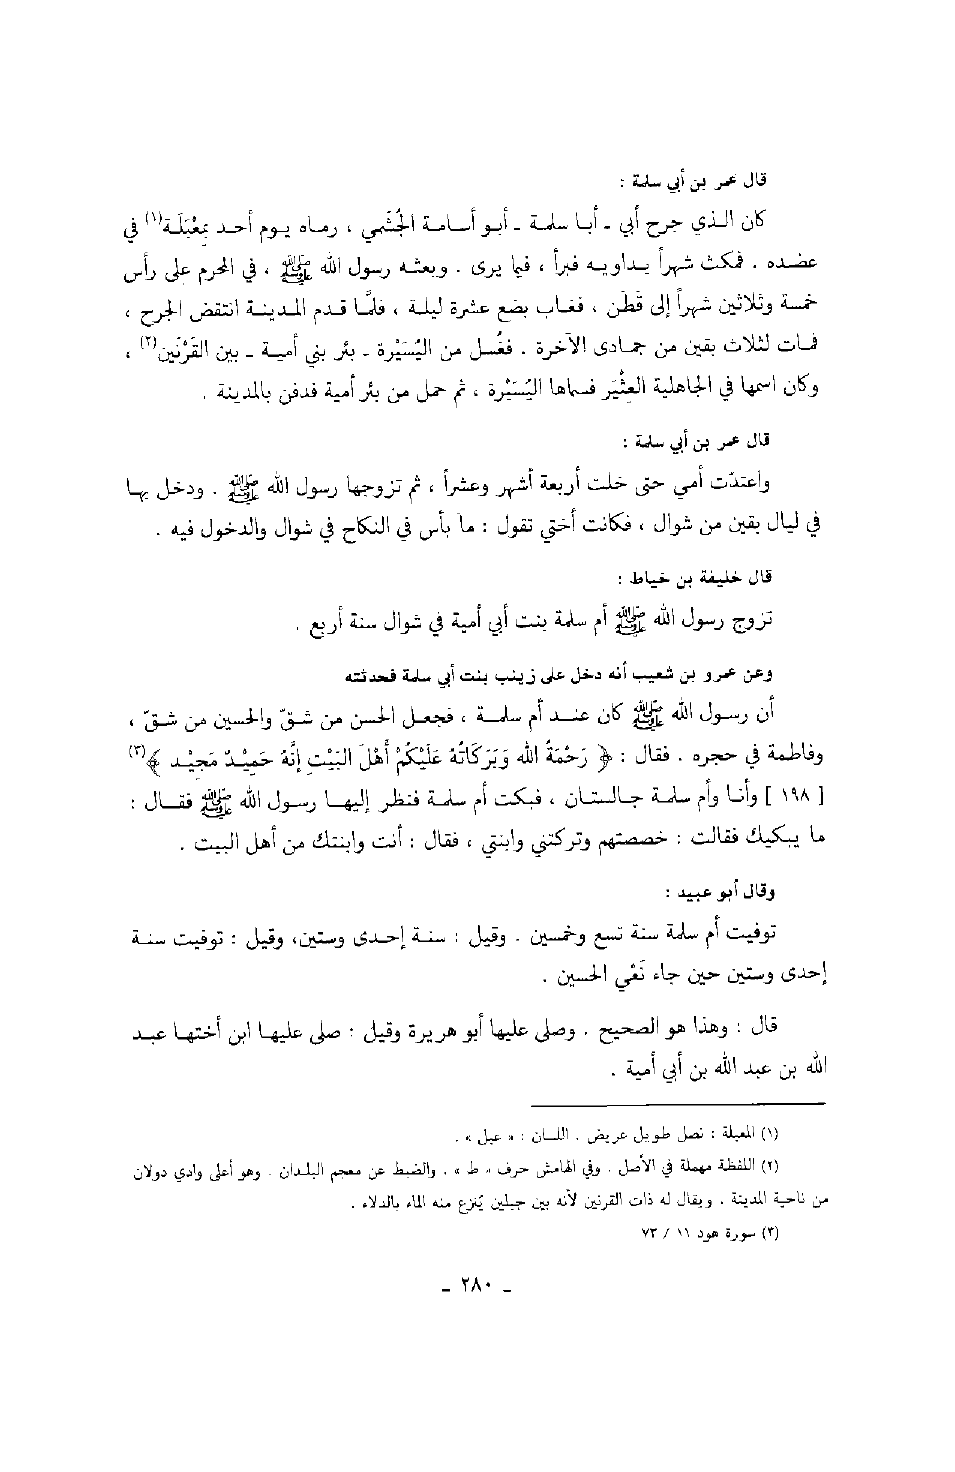 قال عمر بن أبي سلمة :
كان الذي جرح أبي ـ أبا سلمة ـ أبو أسامة الجُشَمي ، رماه يوم أحد بمِعْبَلَة(١) في
عضده . فمكث شهراً يداويه فبرأ ، فيما يرى . وبعثه رسول الله ﷺ ، في المحرم على رأس
خمسة وثلاثين شهراً إلى قَطَن ، فغاب بضع عشرة ليلة ، فلمّا قدم المدينة انتقض الجرح ،
فمات لثلاث بقين من جمادى الآخرة . فغُسل من اليُسَيْرة ـ بئر بني أمية ـ بين القَرْنَين(٢) ،
وكان اسمها في الجاهلية العِثْيَر فسماها اليُسَيْرة ، ثم حمل من بئر أمية فدفن بالمدينة .
قال عمر بن أبي سلمة :
واعتدّت أمي حتى خلت أربعة أشهر وعشراً ، ثم تزوجها رسول الله ﷺ . ودخل بها
في ليال بقين من شوال ، فكانت أختي تقول : ما بأس في النكاح في شوال والدخول فيه .
قال خليفة بن خياط :
تزوج رسول الله ﷺ أم سلمة بنت أبي أمية في شوال سنة أربع .
وعن عمرو بن شعيب أنه دخل على زينب بنت أبي سلمة فحدثته
أن رسول الله ﷺ كان عند أم سلمة ، فجعل الحسن من شقّ والحسين من شقّ ،
وفاطمة في حجره . فقال : ﴿ رَحْمَةُ الله وَبَرَكَاتُهُ عَلَيْكُمْ أَهْلَ البَيْتِ إنَّهُ حَمِيْدٌ مَجِيْد ﴾(٣)
[ ١٩٨ ] وأنا وأم سلمة جالستان ، فبكت أم سلمة فنظر إليها رسول الله ﷺ فقال :
ما يبكيك فقالت : خصصتهم وتركتني وابنتي ، فقال : أنت وابنتك من أهل البيت .
وقال أبو عبيد :
توفيت أم سلمة سنة تسع وخمسين . وقيل : سنة إحدى وستين، وقيل : توفيت سنة
إحدى وستين حين جاء نَعْي الحسين .
قال : وهذا هو الصحيح . وصلى عليها أبو هريرة وقيل : صلى عليها ابن أختها عبد
الله بن عبد الله بن أبي أمية .
(١) المعبلة : نصل طويل عريض . اللسان : « عبل » .
(٢) اللفظة مهملة في الأصل . وفي الهامش حرف « ط » . والضبط عن معجم البلدان . وهو أعلى وادي دولان
من ناحية المدينة . ويقال له ذات القرنين لأنه بين جبلين يُنزع منه الماء بالدلاء .
(٣) سورة هود ١١ / ٧٣
ـ ٢٨٠ ـ